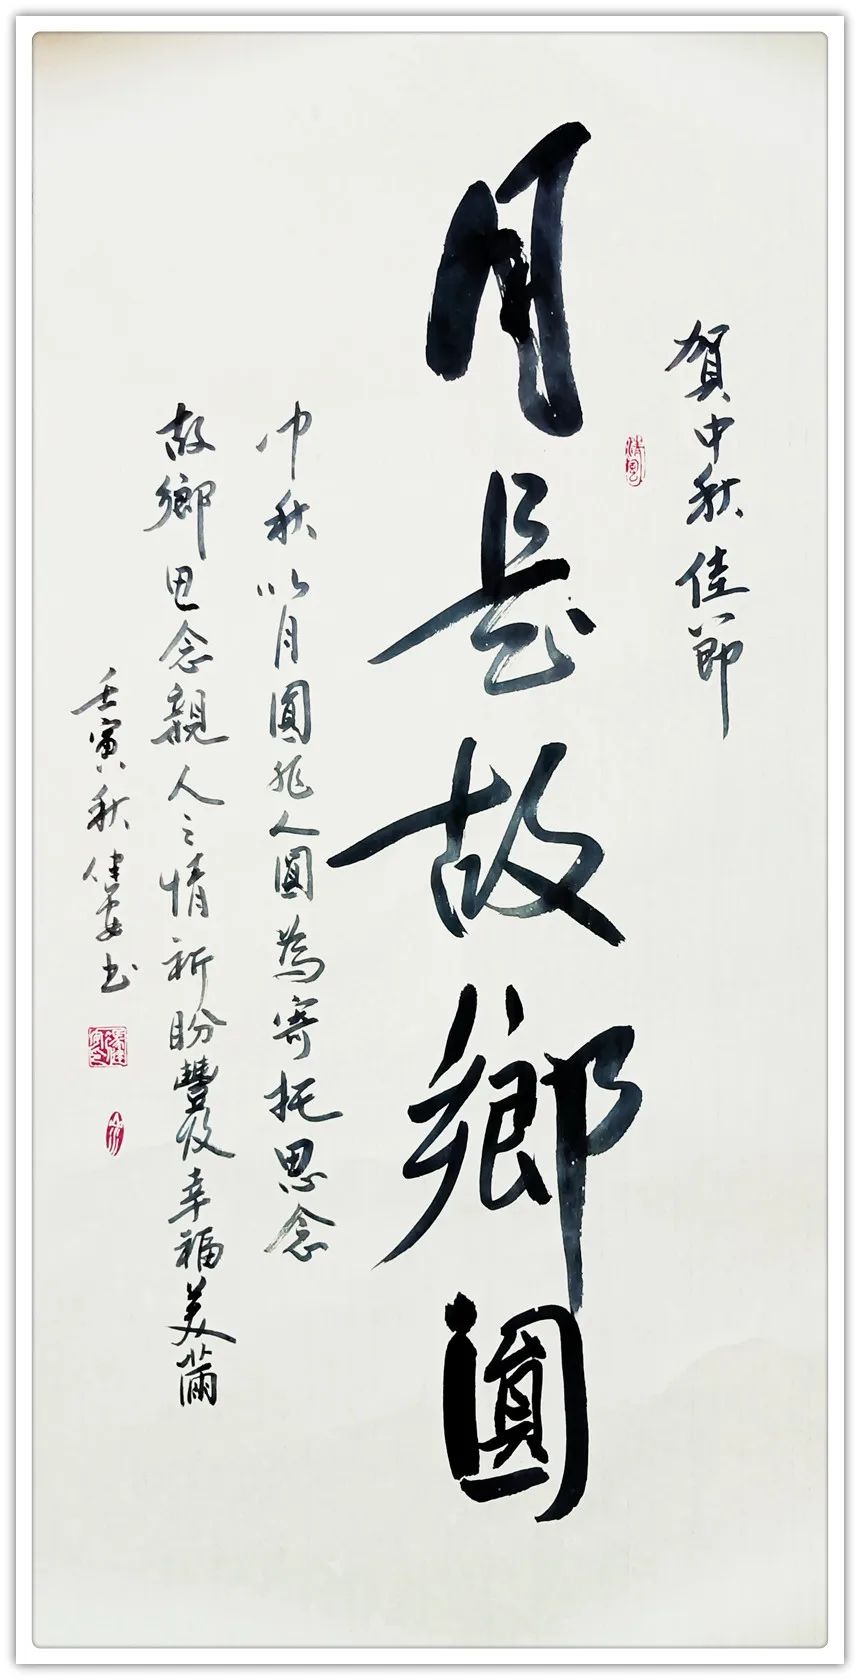 賀中秋佳節
清風
月是故鄉圓
中秋以月圓兆人圓為寄托思念
故鄉思念親人之情祈盼豐收幸福美滿
壬寅秋佳安书